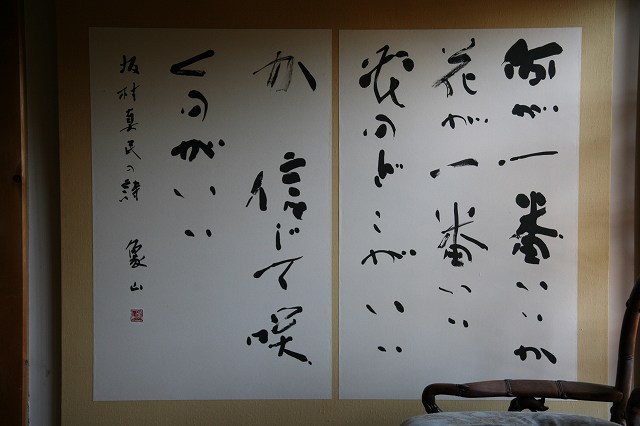 何が一番いいか
花が一番いい
花のどこがいい
か 信じて咲
くのがいい
坂村真民の詩 山